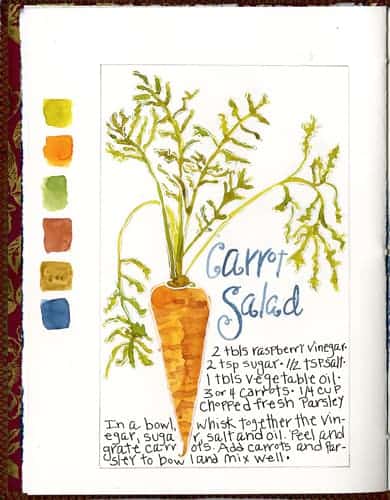 Carrot
Salad
2 tbls raspberry vinegar.
2 tsp sugar. 1/2 tsp salt.
1 tbls vegetable oil.
3 or 4 carrots. 1/4 cup
chopped fresh parsley
In a bowl, whisk together the vin-
egar, sugar, salt and oil. Peel and
grate carrots. Add carrots and par-
sley to bowl and mix well.